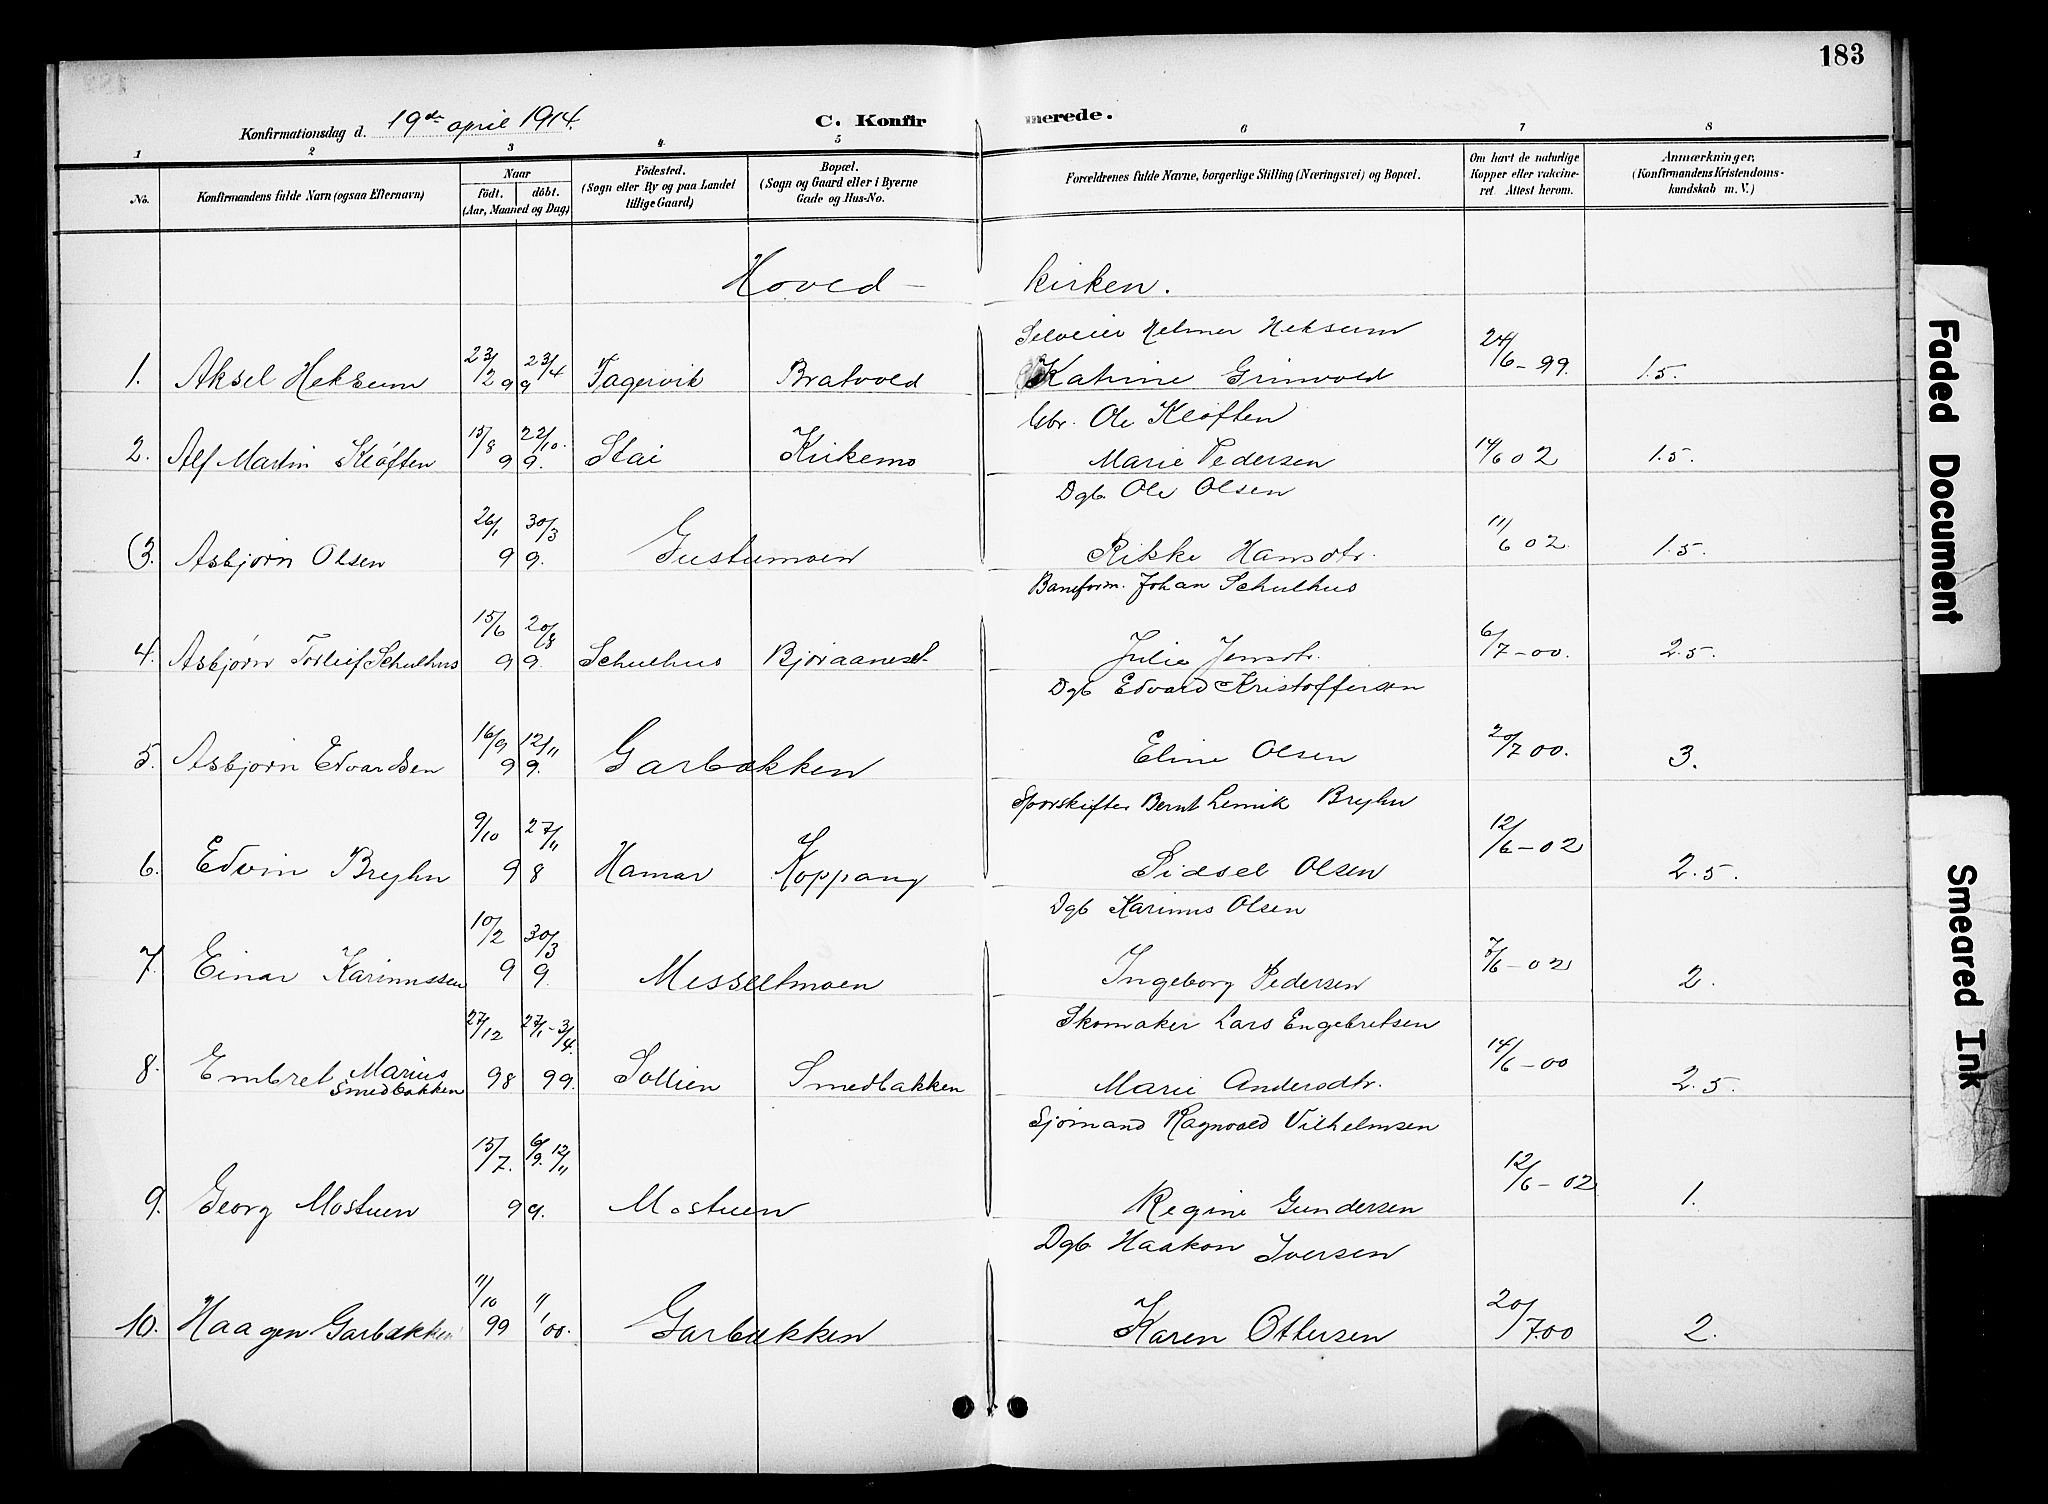 183
Konfirmationsdag d. 19de april 1914.
C. Konfirmerede.
1 2 3 4 5 6 7 8
No.
Konfirmandens fulde Navn (ogsaa Efternavn)
Naar
födt. döbt.
(Aar, Maaned og Dag)
Födested.
(Sogn eller By og paa Landet
tillige Gaard)
Bopæl.
(Sogn og Gaard eller i Byerne
Gade og Hus-No.
Forældrenes fulde Navne, borgerlige Stilling (Næringsvei) og Bopæl.
Om havt de naturlige
Kopper eller vakcine-
ret. Attest herom.
Anmærkninger,
(Konfirmandens Kristendoms-
kundskab m. V.)
Hoved- kirken.
Selveier Helmer Heksum
1. Aksel Heksum 23/2 99 23/4 Fagervik Bratvold Katrine Grinvold 24/6-99. 1.5.
Gbr. Ole Kløften
2. Alf Martin Kløften 15/8 99. 22/10. Stai Kirkemo Marie Pedersen 14/6 02 1.5.
Dgb. Ole Olsen
(3. Asbjørn Olsen 26/1 99. 30/3 Gustumoen Rikke Hansdtr. 11/6 02. 1.5.
Baneform. Johan Schulhus
4. Asbjørn Torlief Schulhus 15/6 99. 20/8 Schulhus Bjøraaneset Julie Jensdtr. 6/7-00. 2.5.
Dgb Edvard Kristoffersen
5. Asbjørn Edvardsen 16/9 99. 12/11 Garbakken Eline Olsen 20/7 00. 3.
Sporskifter Bernt Lennik Bryhn
6. Edvin Bryhn 9/10 98 27/11 Hamar Koppang Sidsel Olsen 12/6-02 2.5.
Dgb Karinus Olsen
7. Einar Karinussen 10/2 99. 30/3 Messeltmoen Ingeborg Pedersen 7/6-02 2.
Skomaker Lars Engebretsen
8. Embret Marius Smedbakken 27/12 98 27/1-3/4. 99. Sollien Smedbakken Marie Andersdtr. 14/6-00 2.5.
Sjømand Ragnvald Vilhelmsen
9. Georg Mostuen 15/7. 99. 6/9. 12/11 Mostuen Regine Gundersen 12/6-02. 1.
Dgb Haakon Iversen
10. Haagen Garbakken 11/10 99 1/1 00. Garbakken Karen Ottersen 20/7.00 2.
Faded Document
Smeared Ink